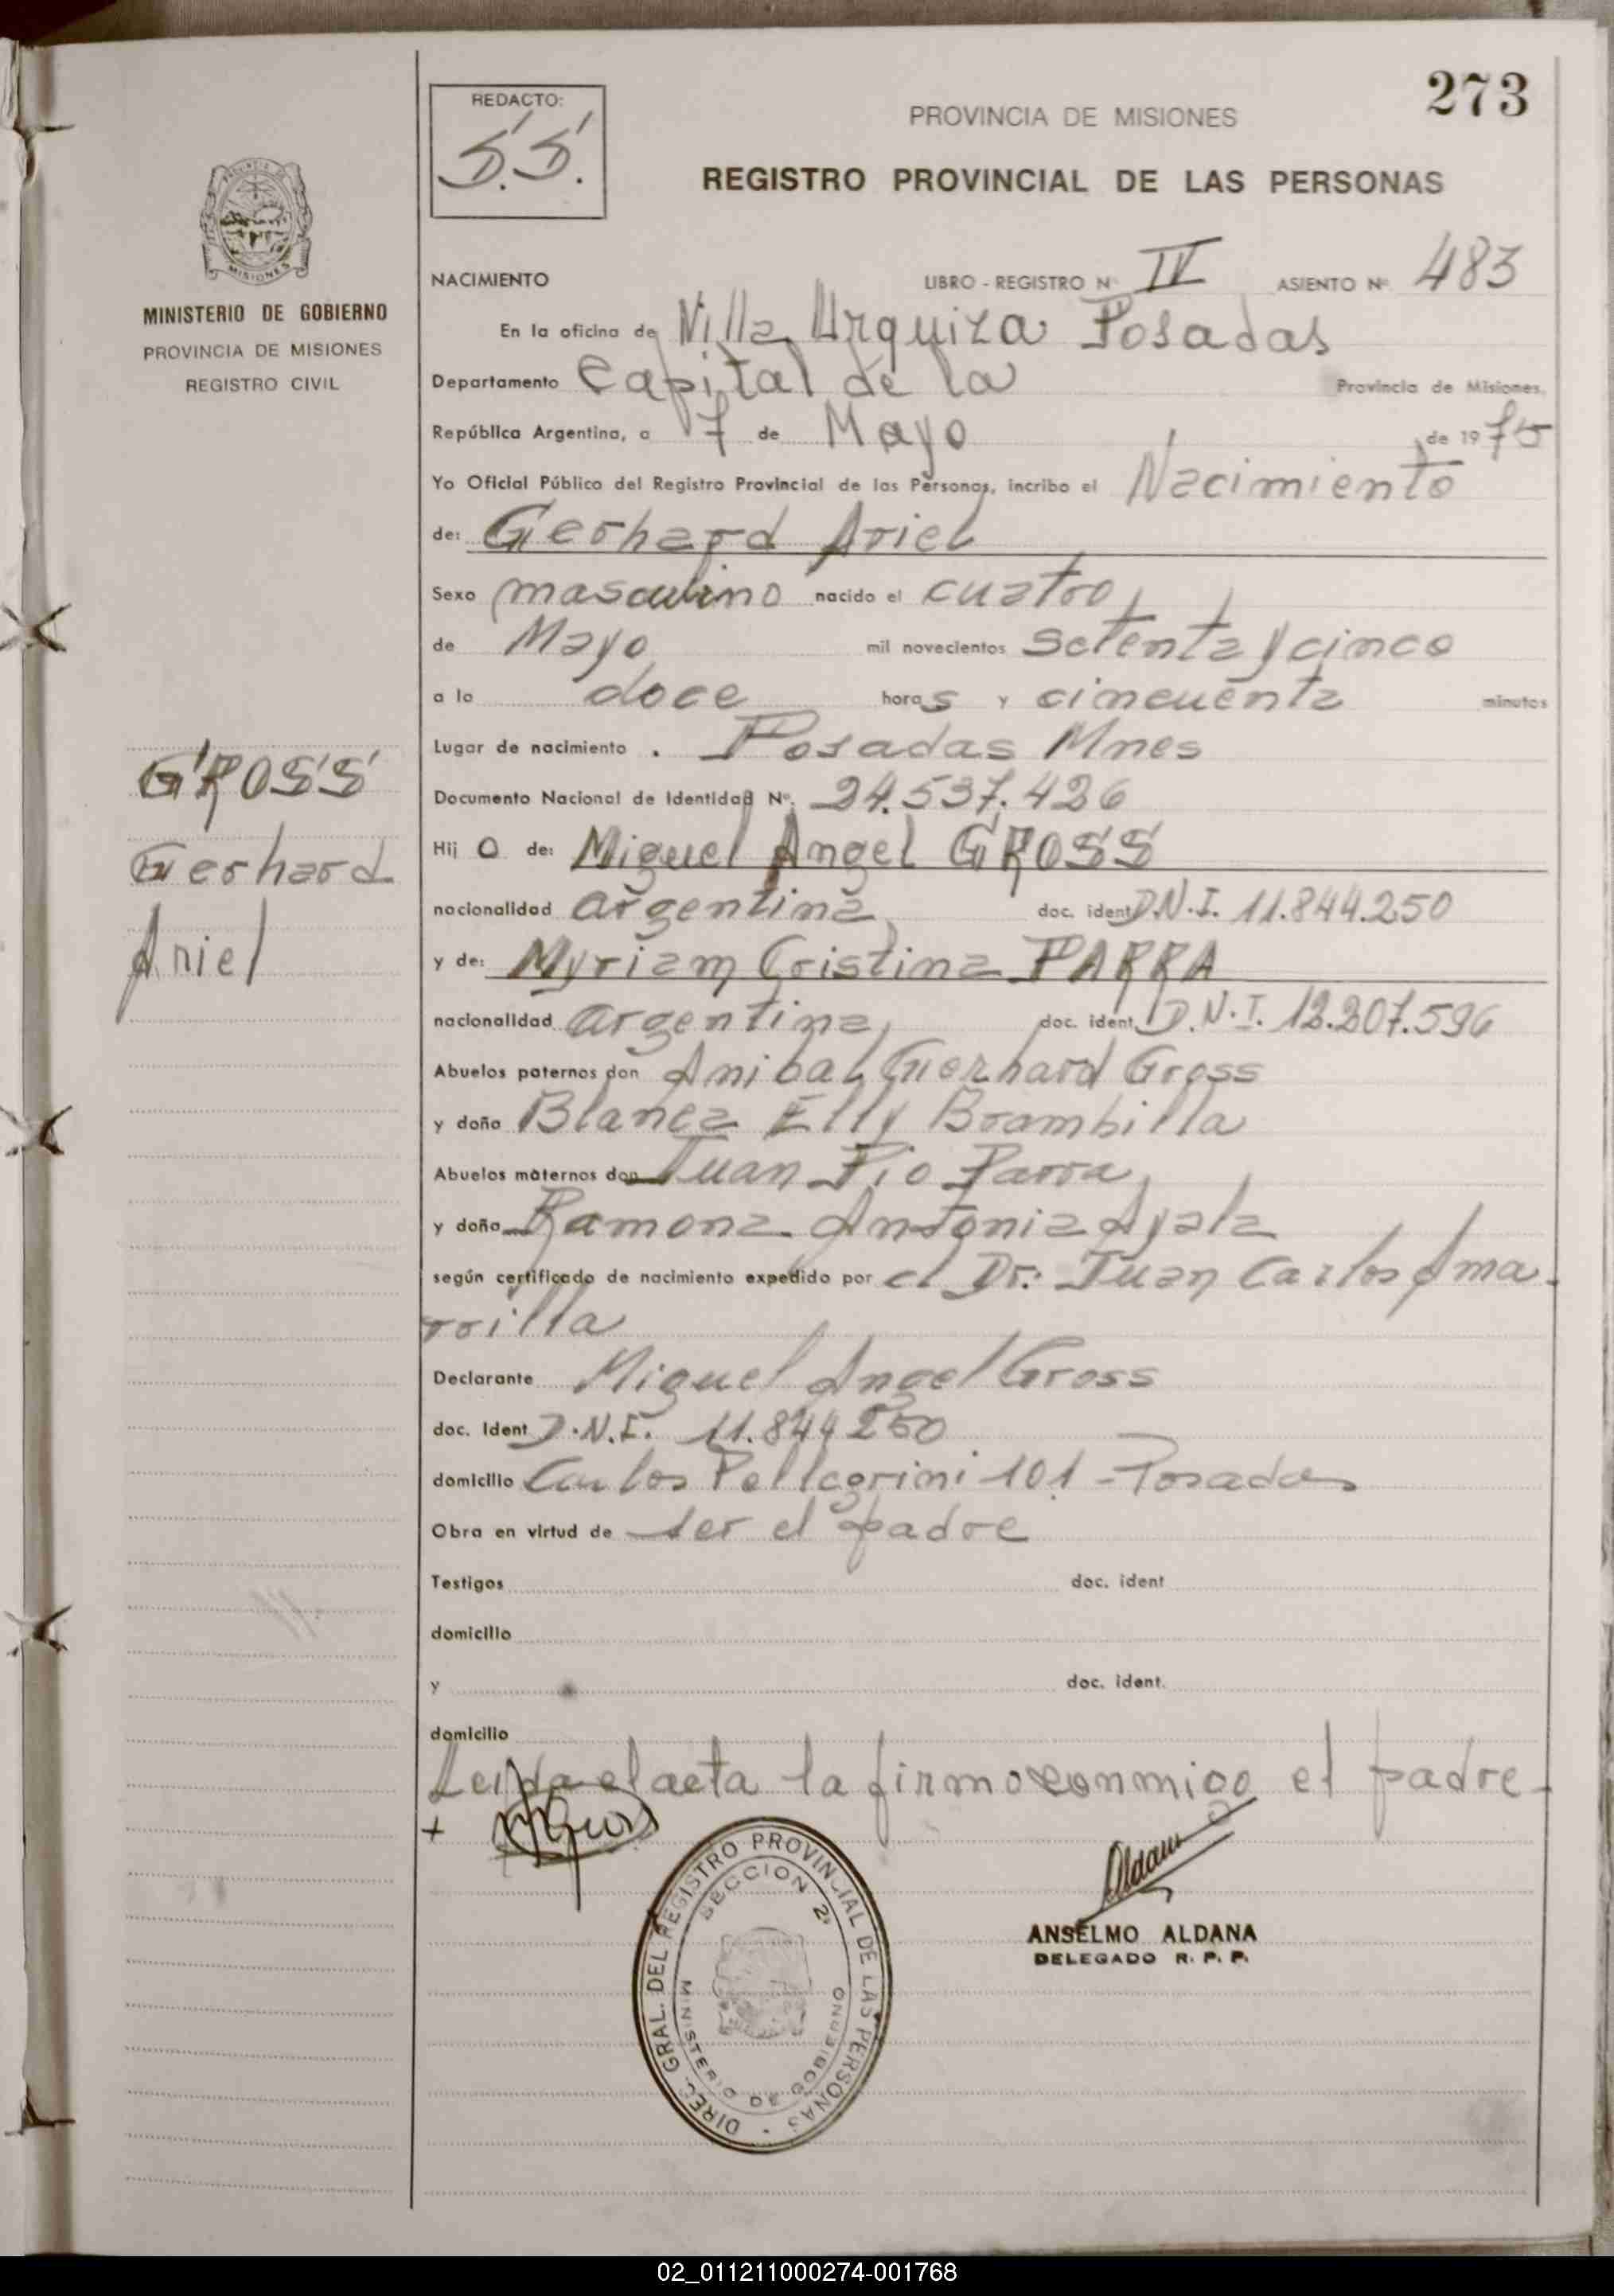 273
REDACTO:
S.S.
PROVINCIA DE MISIONES
REGISTRO PROVINCIAL DE LAS PERSONAS
MISIONES
MINISTERIO DE GOBIERNO
PROVINCIA DE MISIONES
REGISTRO CIVIL
GROSS
Gerhard
Ariel
NACIMIENTO LIBRO - REGISTRO Nº IV ASIENTO Nº 483
En la oficina de Villa Urquiza Posadas
Departamento Capital de la Provincia de Misiones,
República Argentina, a 7 de Mayo de 1975
Yo Oficial Público del Registro Provincial de las Personas, incribo el Nacimiento
de: Gerhard Ariel
Sexo masculino nacido el cuatro
de Mayo mil novecientos setenta y cinco
a la doce horas y cincuenta minutos
Lugar de nacimiento . Posadas Mnes
Documento Nacional de Identidad Nº. 24.537.426
Hij o de: Miguel Angel GROSS
nacionalidad argentina doc. ident D.N.I. 11.844.250
y de: Myriam Cristina PARRA
nacionalidad argentina doc. ident D.N.I. 12.207.596
Abuelos paternos don Anibal Gerhard Gross
y doña Blanca Elly Brambilla
Abuelos maternos don Juan Pio Parra
y doña Ramona Antonia Ayala
según certificado de nacimiento expedido por el Dr: Juan Carlos Ama-
rrilla
Declarante Miguel Angel Gross
doc. Ident D.N.I. 11.844250
domicilio Carlos Pellegrini 101 - Posadas
Obra en virtud de ser el padre
Testigos doc. ident
domicilio
y doc. ident.
domicilio
Leida el acta la firmo conmigo el padre-
+ Gross
Aldana
ANSELMO ALDANA
DELEGADO R. P. P.
DIREC. GRAL. DEL REGISTRO PROVINCIAL DE LAS PERSONAS
SECCION 2ª
MINISTERIO DE GOBIERNO
02_011211000274-001768